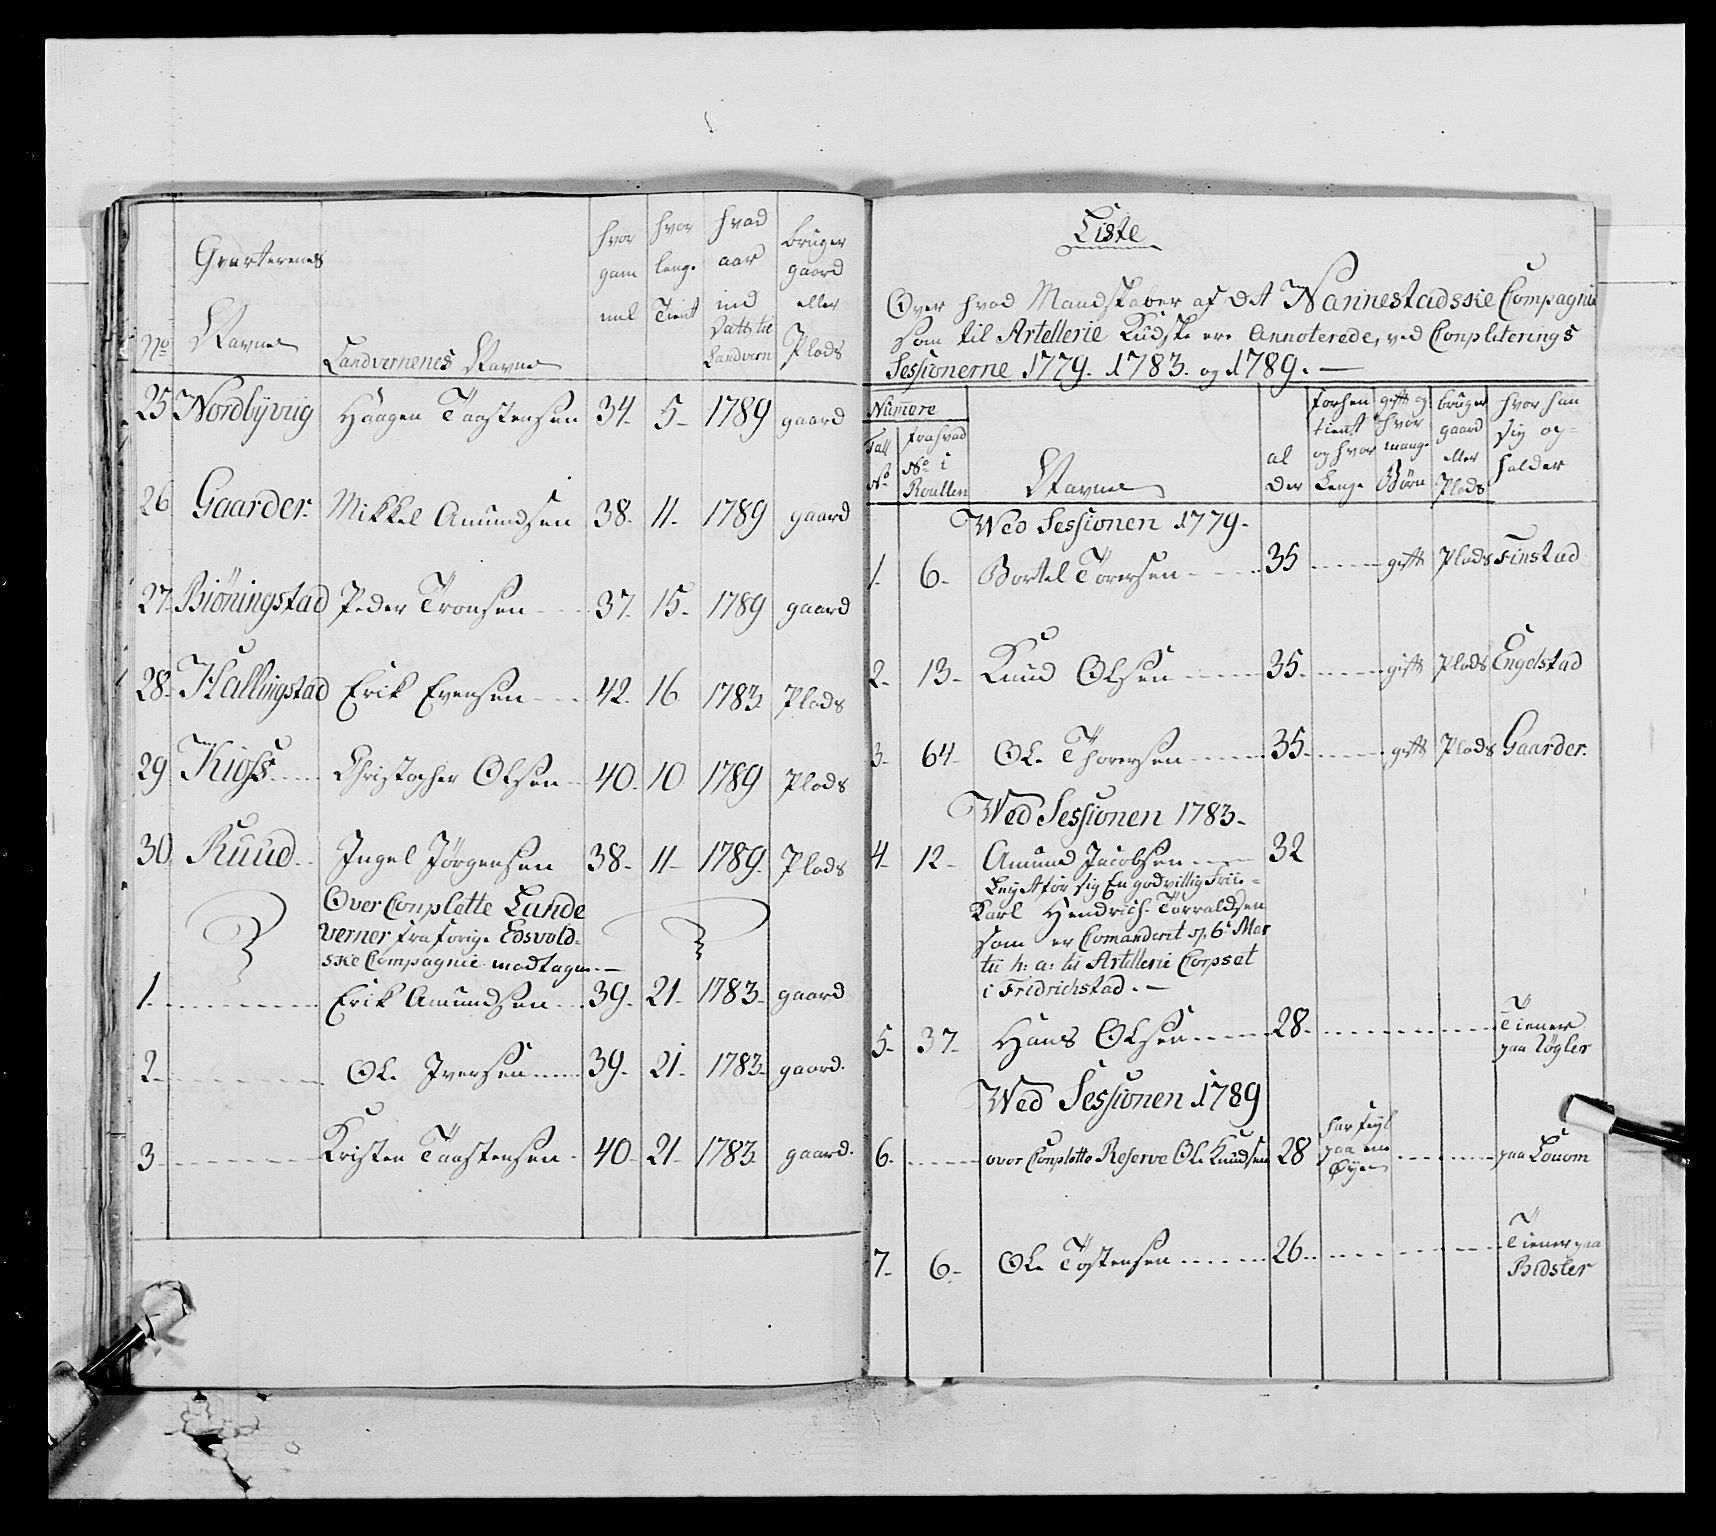 No
Qvarterenes
Navne
Landvernenes Navne
hvor gam mel
hvor lenge Tient
hvad aar ind Satt til Landvern
bruger gaard eller Plads
25 Nordbÿviig Haagen Taastensen 34. 5. 1789 gaard
26 Gaarder. Mikkel Amundsen 38. 11. 1789 gaard
27. Biöningstad Peder Tronsen 37. 15. 1789 gaard
28. Hallingstad Erik Evensen 42. 16 1783. Plads
29 Kiøs Christopher Olsen 40. 10 1789 Plads
30. Ruud Ingel Jörgensen 38. 11. 1789. Plads
Over Conplette Lande
verner fra forige Edsvold-
ske Compagnie modtagen.
1. Erik Amundsen 39. 21. 1783. gaard
2. Ole Iversen 39. 21. 1783. gaard.
3. Kristen Taastensen 40. 21. 1783. gaard.
Liste
Over hvad Mandskaber af det Nannestadsske Compagnie
som til Artellerie Kudske ere Annoterede, ved Conpliterings
Sessionerne 1779. 1783. og 1789.
Numere
Tall No
fra hvad No i Roullen
Navne
al der
forhen tient og hvor Lenge
gift og hvor mange Börn
bruger gaard eller Plads
hvor han sig op-holder
Wed Sessionen 1779.
1. 6. Bertel Torersen 35 gift Plads Finstad
2. 13. Knud Olsen 35. gift Plads Engelstad
3. 64. Ole Thorersen 35. gift Plads Gaarder.
Wed Sessionen 1783.
4. 12. Amund Jacobsen 32
Leyet for sig En godvillig Frii-
Karl Hendrich Torraldsen
som er Comanderet d. 6t Mar
tii h: a: til Artellerie Corpset
i Fridrichstad.
5. 37. Hans Olsen 28. Tiener
paa Løgler
Wed Sessionen 1789
6. over Conplette Reserve Ole Knudsen 28 har feyl paa ene Øye paa Louom
7. 6. Ole Tostensen 26. Tiener paa
Bidsler